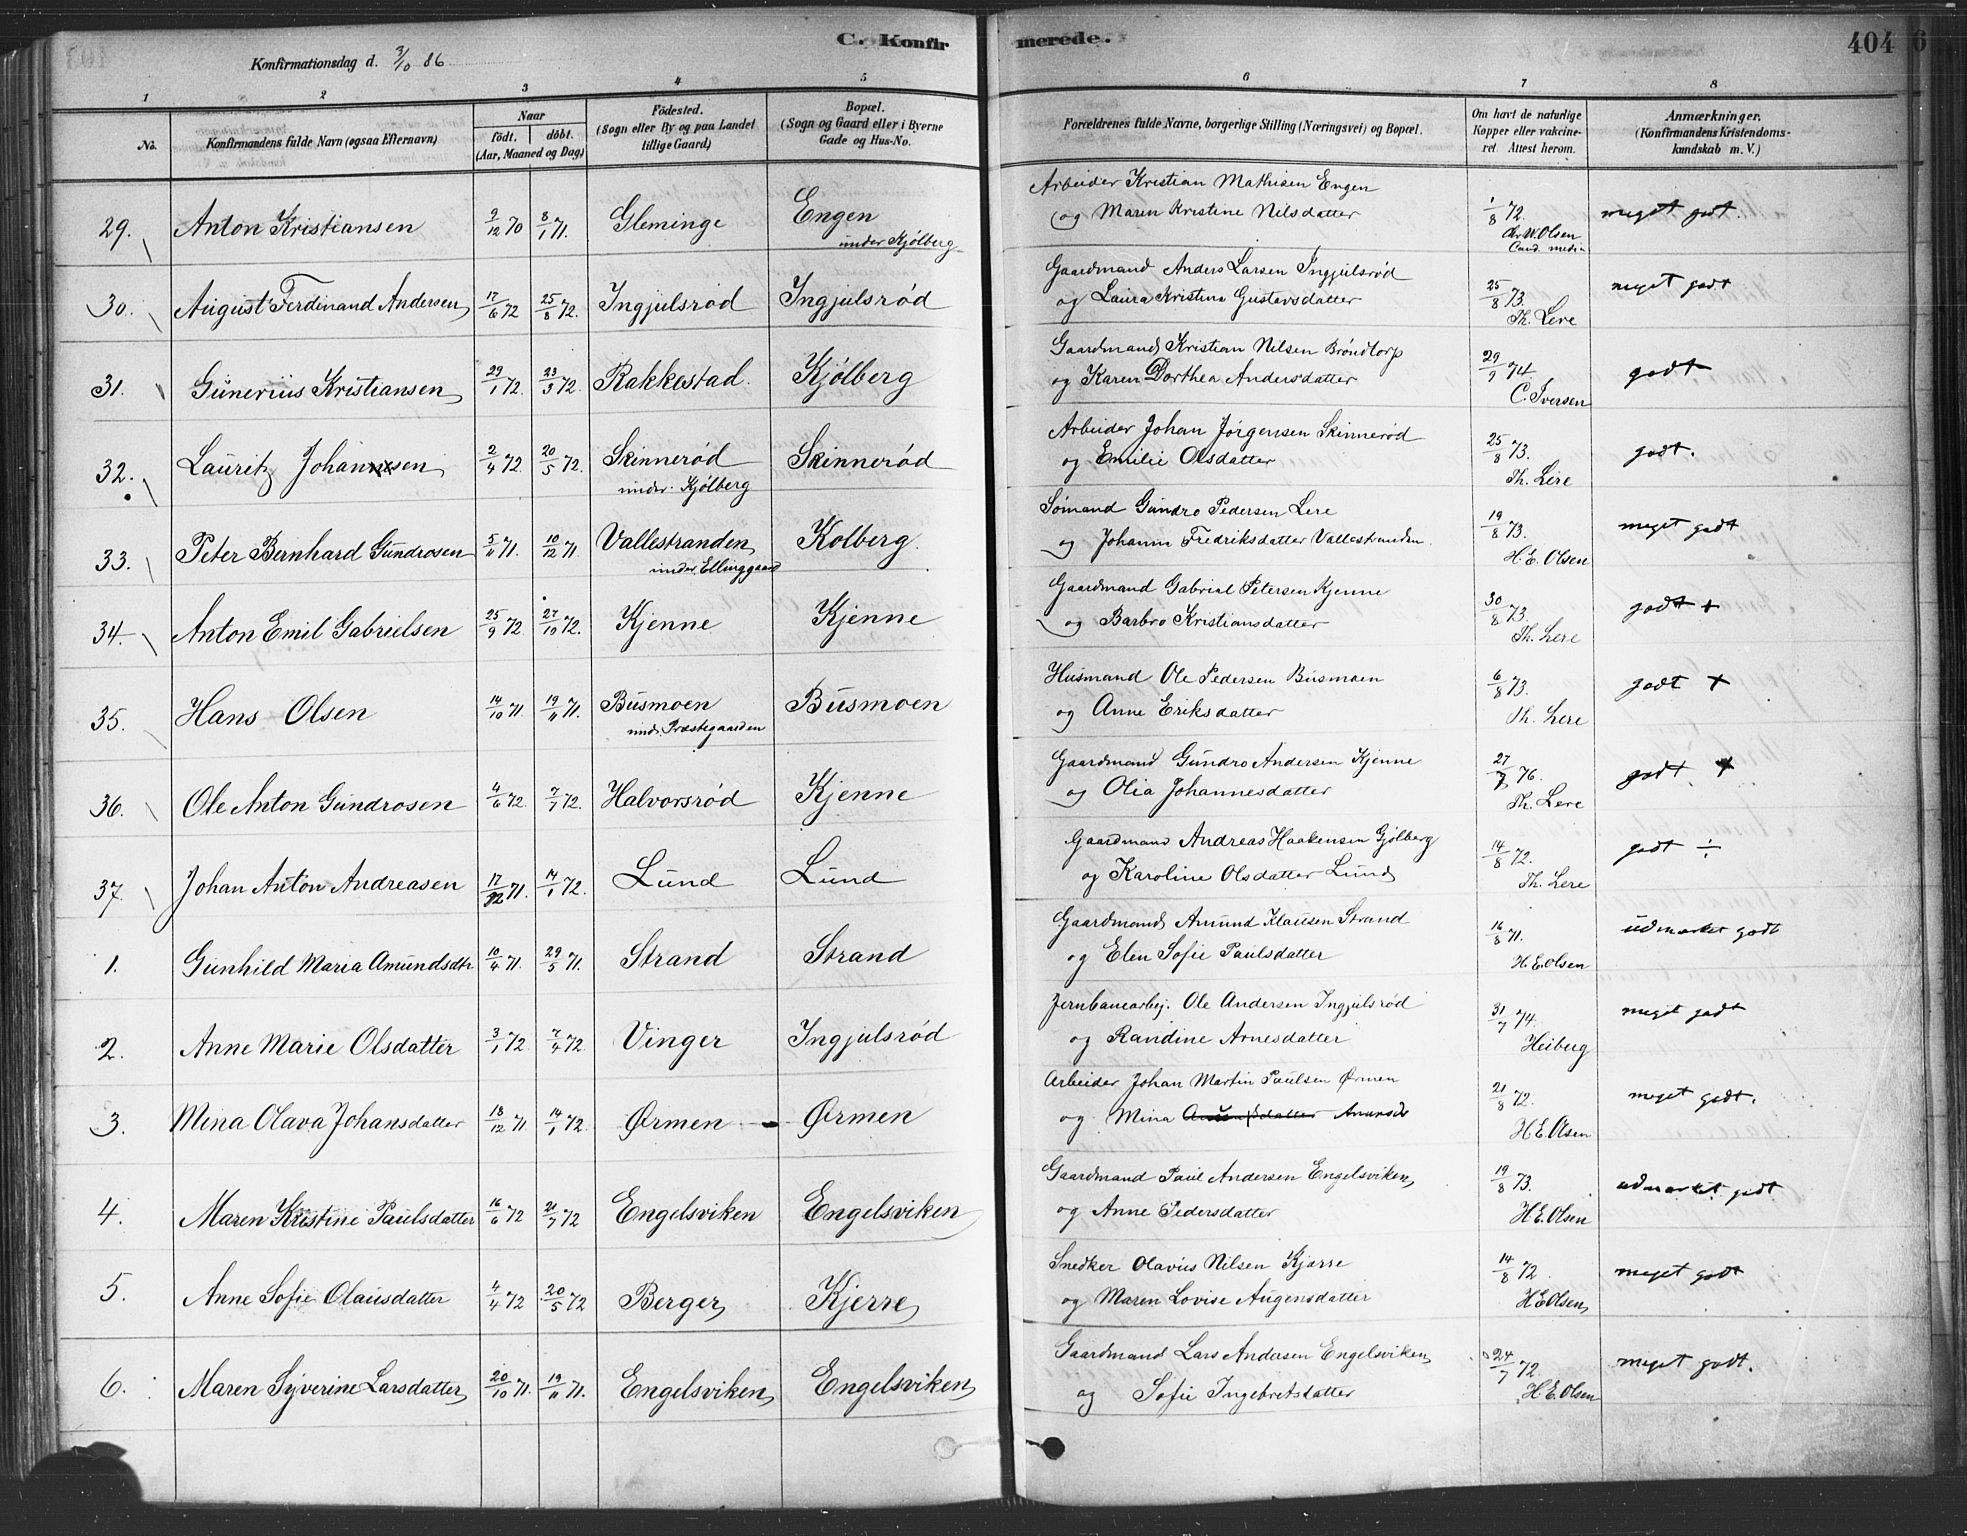 C. Konfirmerede.
404
6
Konfirmationsdag d. 3/10 86
1 2 3 4 5 6 7 8
No.
Konfirmandens fulde Navn (ogsaa Efternavn)
Naar
födt. döbt.
(Aar, Maaned og Dag)
Födested.
(Sogn eller By og paa Landet
tillige Gaard)
Bopæl.
(Sogn og Gaard eller i Byerne
Gade og Hus-No.
Forældrenes fulde Navne, borgerlige Stilling (Næringsvei) og Bopæl.
Om havt de naturlige
Kopper eller vakcine-
ret. Attest herom.
Anmærkninger.
(Konfirmandens Kristendoms-
kundskab m. V.)
29. Anton Kristiansen 9/12 70 8/1 71. Gleminge Engen
under Kjølberg
Arbeider Kristian Mathisen Engen
og Maren Kristine Nilsdatter
1/8 72.
Chr W. Olsen
Cand. medi
meget godt.
30. August Ferdinand Andersen 17/6 72 25/8 72. Ingjulsrød Ingjulsrød
Gaardmand Anders Larsen Ingjulsrød
og Laura Kristine Gustavsdatter
25/8 73.
Th. Lere
meget godt
31. Gunerius Kristiansen 29/1 72. 23/3 72. Rakkestad. Kjølberg
Gaardmand Kristian Nilsen Brøndtorp
og Karen Dorthea Andersdatter
29/9 74.
C. Iversen
godt
32. Lauritz Johannsen 2/4 72. 20/5 72. Skinnerød Skinnerød
under Kjølberg
Arbeider Johan Jørgensen Skinnerød
og Emilie Olsdatter
25/8 73.
Th. Lere
godt.
33. Peter Bernhard Gundrosen 5/11 71. 10/12 71. Vallestranden Kolberg.
under Ellinggaard
Sømand Gundro Pedersen Lere
og Johanne Fredriksdatter Vallestranden.
19/8 73.
H. E. Olsen
meget godt
34. Anton Emil Gabrielsen 25/9 72. 27/10 72. Kjenne Kjenne
Gaardmand Gabriel Petersen Kjenne
og Barbro Kristiansdatter
30/8 73.
Th. Lere
godt +
35. Hans Olsen 14/10 71. 19/11 71. Busmoen Busmoen
und. Præstegaarden
Husmand Ole Pedersen Busmoen
og Anne Eriksdatter
6/8 73.
Th. Lere
godt +
36. Ole Anton Gundrosen 4/6 72. 7/7 72. Halvorsrød Kjenne
Gaardmand Gundro Andersen Kjenne
og Olia Johannesdatter
27/7 76.
Th. Lere
godt +
37. Johan Anton Andreasen 17/12 71. 14/1 72. Lund Lund
Gaardmand Andreas Haakensen Gjølberg
og Karoline Olsdatter Lund
14/8 72.
Th. Lere
godt ÷
1. Gunhild Maria Amundsdtr 10/4 71. 29/5 71. Strand Strand
Gaardmand Amund Klausen Strand
og Elen Sofie Paulsdatter
16/8 71.
H. E. Olsen
udmærket godt
2. Anne Marie Olsdatter 3/1 72. 7/4 72. Vinger Ingjulsrød
Jernbanearbej. Ole Andersen Ingjulsrød
og Randine Arnesdatter
31/7 74.
Heiberg
meget godt
3. Mina Olava Johansdatter 18/12 71. 14/1 72. Ørmen - Ørmen
Arbeider Johan Martin Paulsen Ørmen
og Mina
21/8 72.
H. E. Olsen
meget godt.
4. Maren Kristine Paulsdatter 16/6 72 21/7 72 Engelsviken Engelsviken
Gaardmand Paul Andersen Engelsviken
og Anne Pedersdatter
19/8 73.
H. E. Olsen
udmærket godt
5. Anne Sofie Olausdatter 4/4 72 20/5 72 Berger Kjerre
Snedker Olavus Nilsen Kjærre
og Maren Lovise Augensdatter
14/8 72.
H. E. Olsen
meget godt
6. Maren Syverine Larsdatter 20/10 71. 19/11 71. Engelsviken Engelsviken
Gaardmand Lars Andersen Engelsviken
og Sofie Ingebretsdatter
24/7 72.
H. E. Olsen
meget godt.